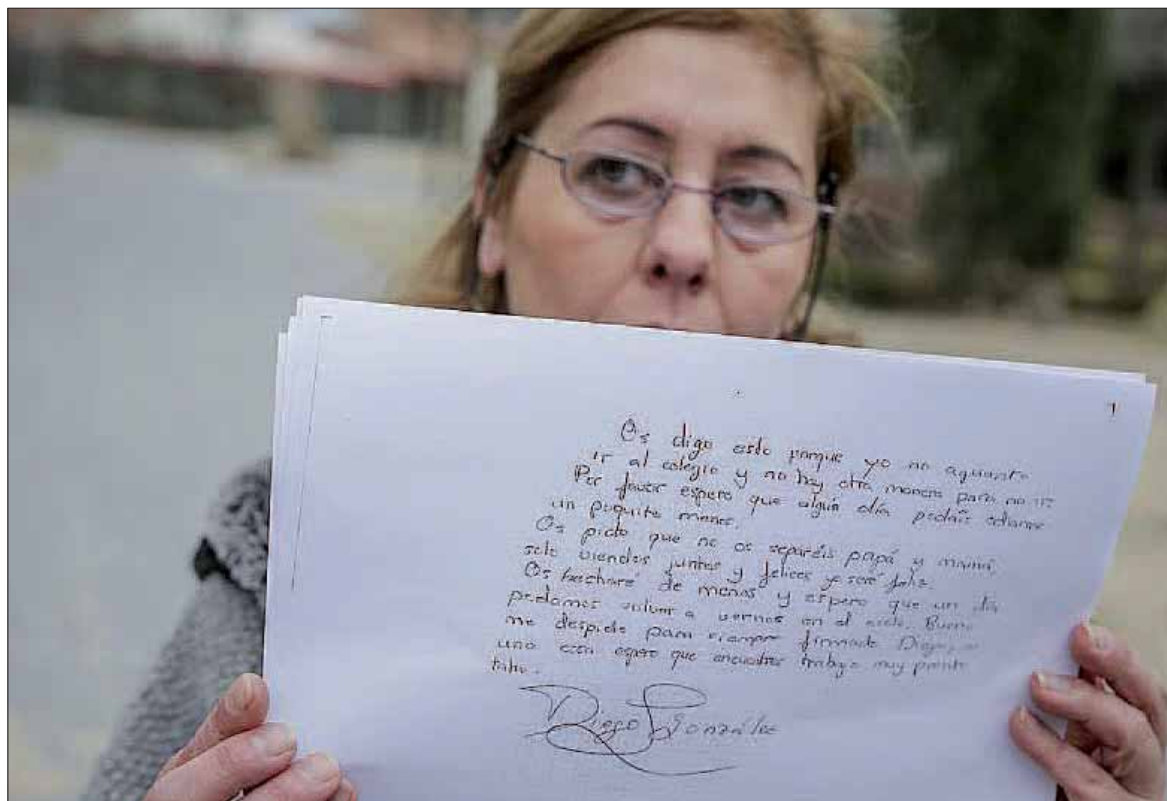 1
Os digo esto porque yo no aguanto
ir al colegio y no hay otra manera para no ir
Por favor espero que algún día podáis odiarme
un poquito menos.
Os pido que no os separéis papá y mamá,
solo viendos juntos y felices yo seré feliz.
Os hecharé de menos y espero que un día
podamos volver a vernos en el cielo. Bueno
me despido para siempre firmado Diego,
una cosa espero que encuentres trabajo muy pronto
Diego González